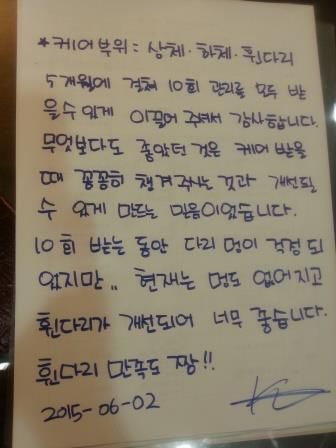 *케어부위 : 상체·하체·휜다리
5개월에 걸쳐 10회 관리를 모두 받
을수 있게 이끌어 주셔서 감사합니다.
무엇보다도 좋았던 것은 케어 받을
때 꼼꼼히 챙겨주시는 것과 개선될
수 있게 만드는 믿음이었습니다.
10회 받는 동안 다리 멍이 걱정 되
었지만.. 현재는 멍도 없어지고
휜다리가 개선되어 너무 좋습니다.
휜다리 만족도 짱!!
2015-06-02